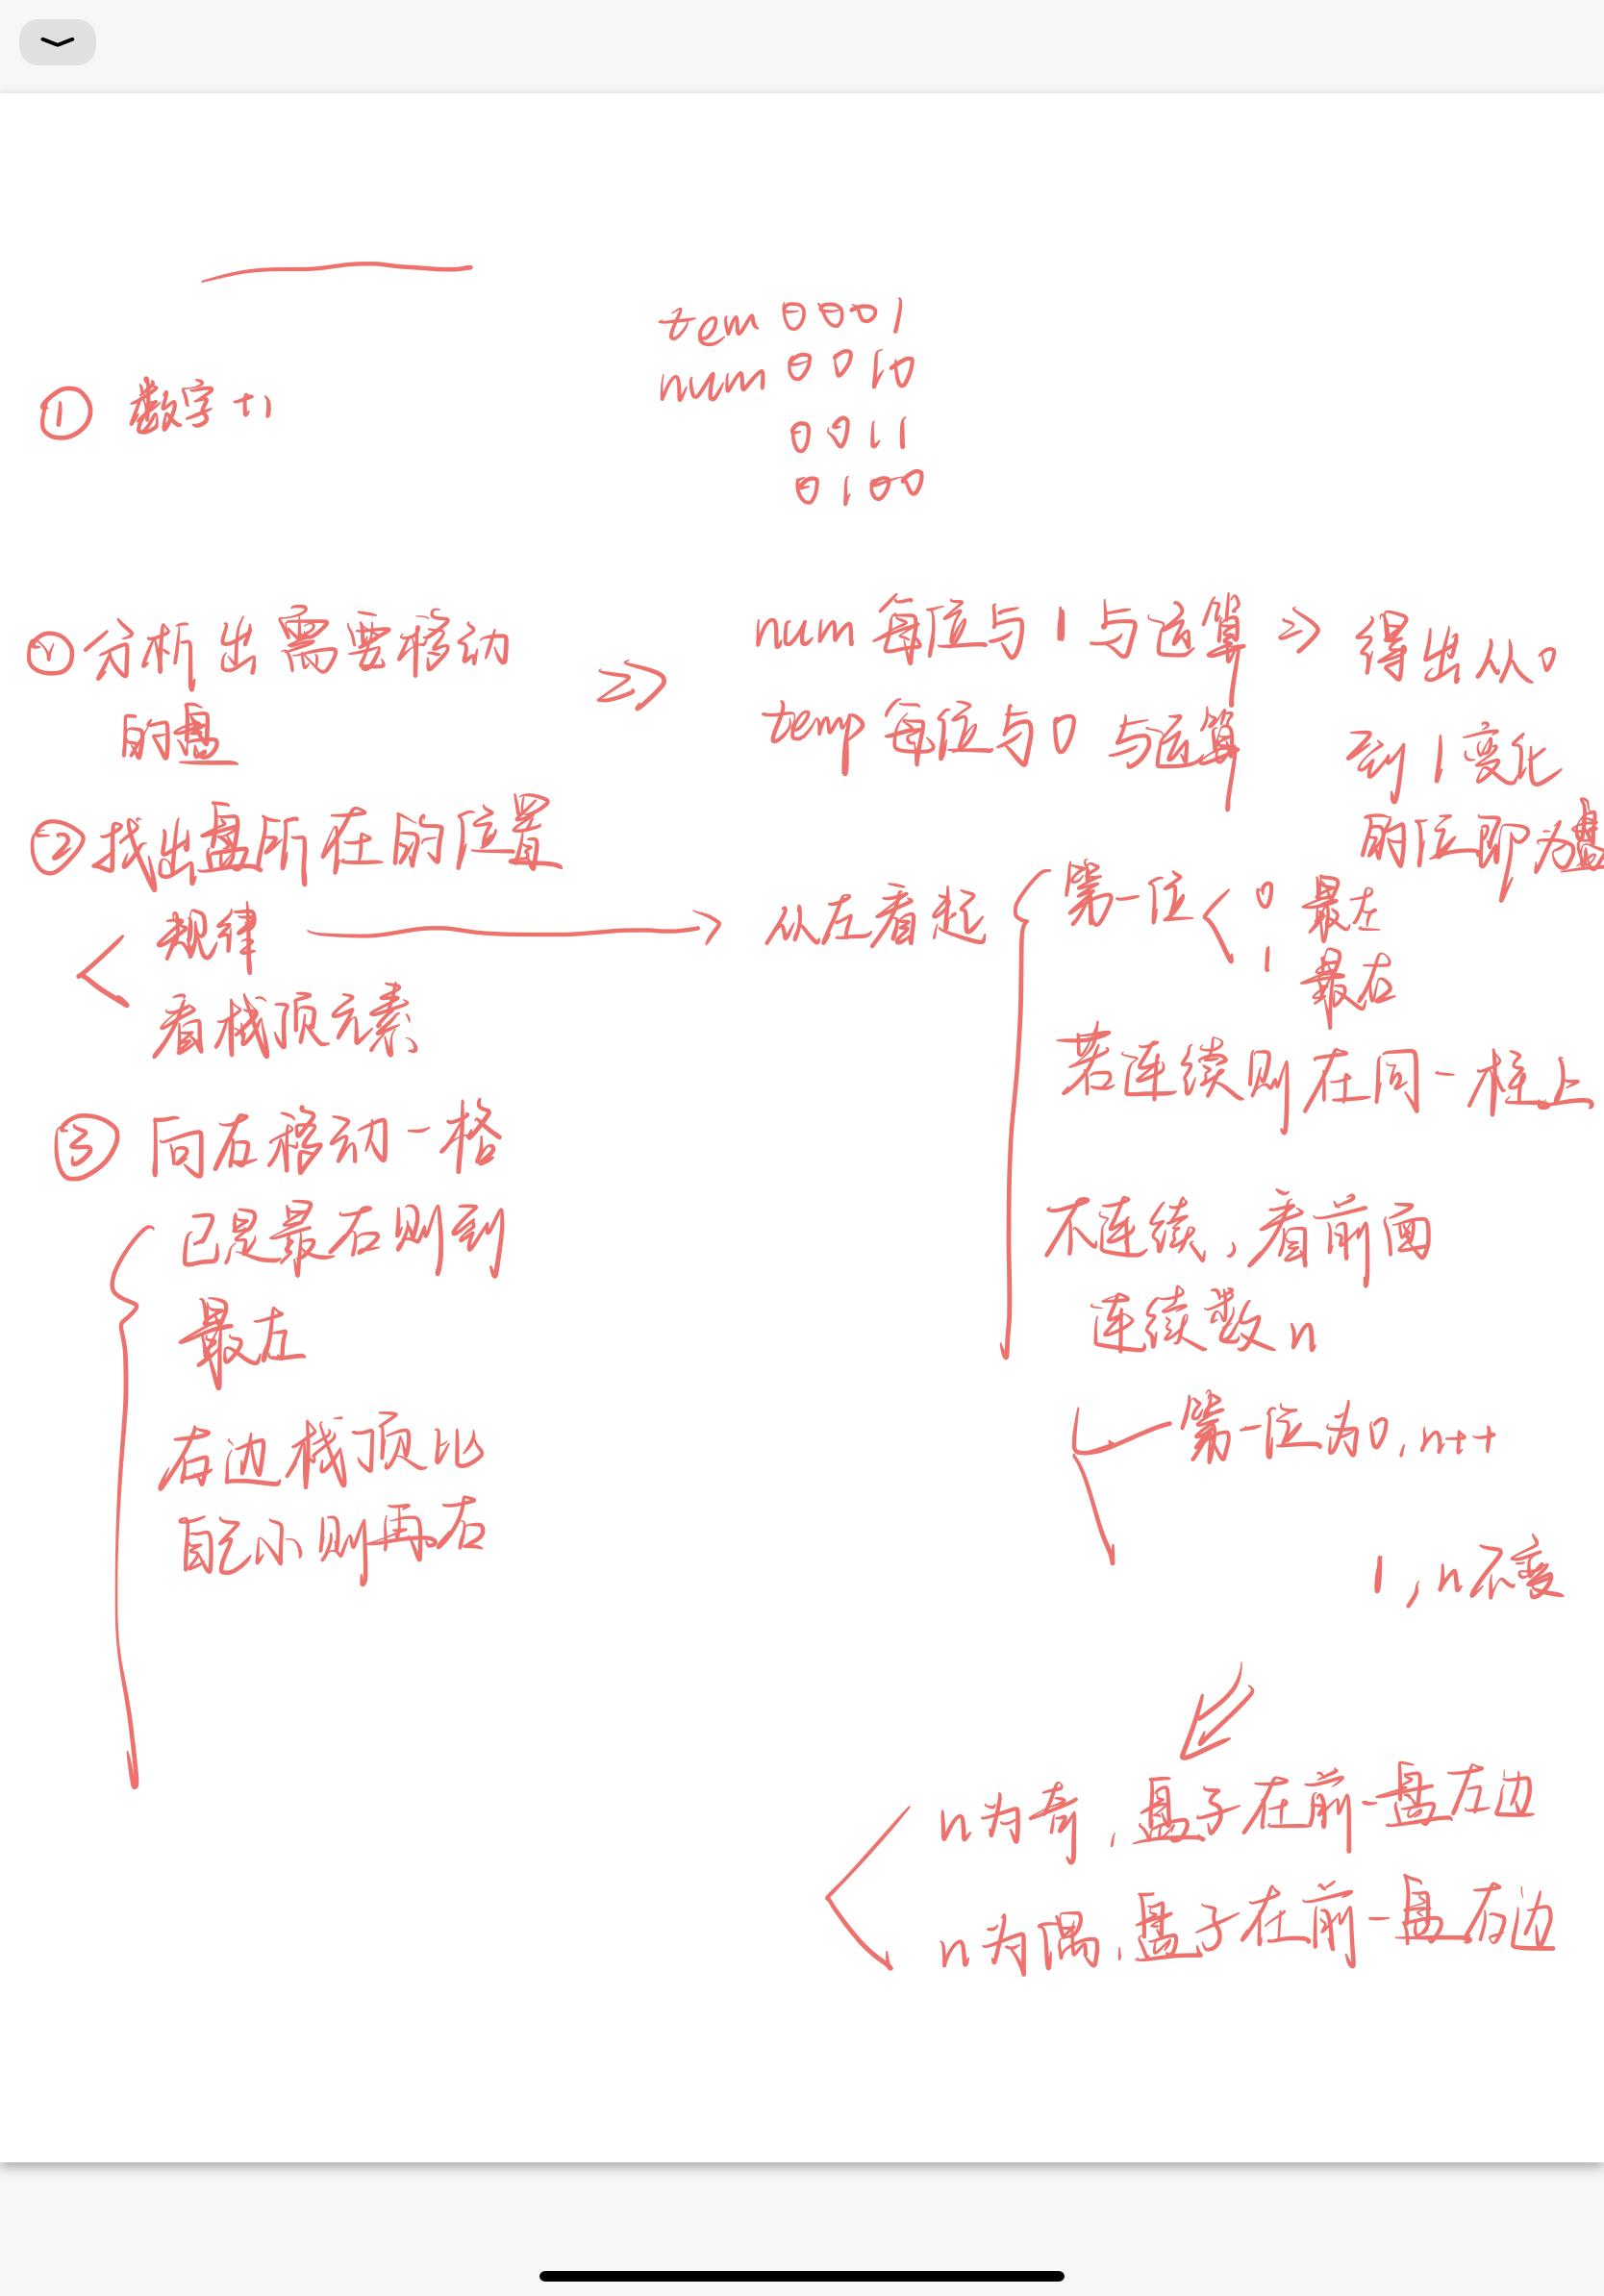 ① 数字+1
tem 0001
num 0010
0011
0100
①分析出需要移动
的盘
>>
num 每位与 1 与运算 >> 得出从0
temp 每位与 0 与运算 到 1 变化
的位即为盘
②找出盘所在的位置
规律
看栈顶元素
从左看起
第一位 0 最左
1 最右
若连续则在同一柱上
不连续,看前面
连续数 n
第一位为0,n++
1,n不变
n为奇,盘子在前一盘左边
n为偶,盘子在前一盘右边
③ 向右移动一格
已是最右则到
最左
右边栈顶比
自己小则再右